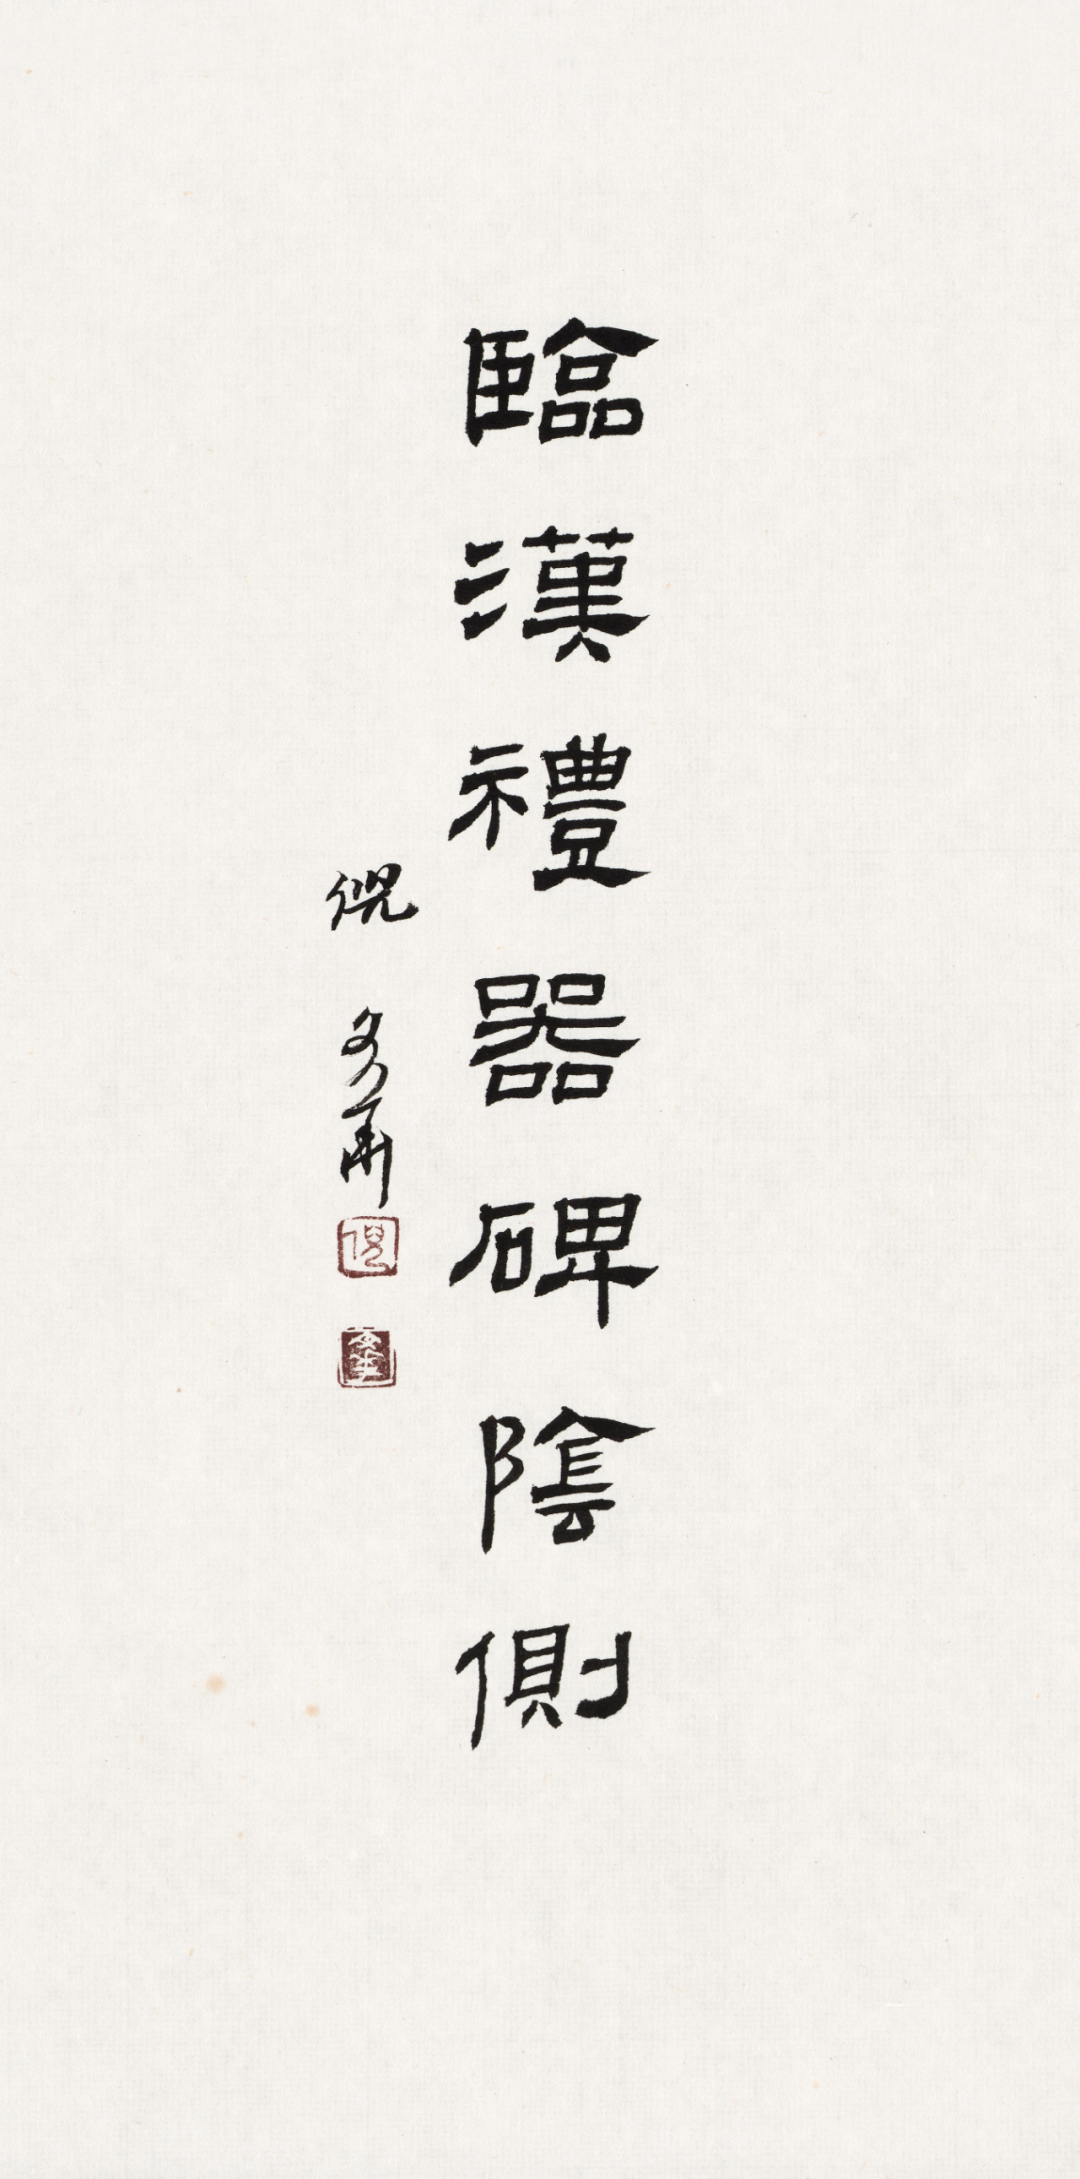 臨漢禮器碑陰側
倪文華
倪